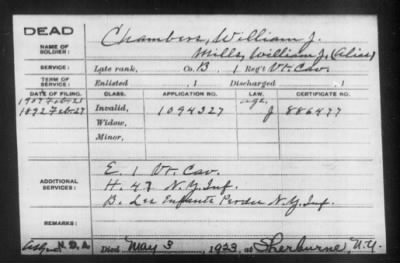 DEAD
NAME OF SOLDIER:
Chambers, William J.
Mills, William J. (Alias)
SERVICE:
Late rank, Co. B, 1 Reg't Vt. Cav.
TERM OF SERVICE:
Enlisted , 1 Discharged , 1
DATE OF FILING. CLASS. APPLICATION NO. LAW. CERTIFICATE NO.
1907 Feb 21 age,
1892 Feb 27 Invalid, 1094327 J 886477
Widow,
Minor,
ADDITIONAL SERVICES:
E. 1 Vt. Cav.
H. 47 N.Y. Inf.
N.Y. Inf.
REMARKS:
Died May 3, 1923, at Sherburne, N.Y.